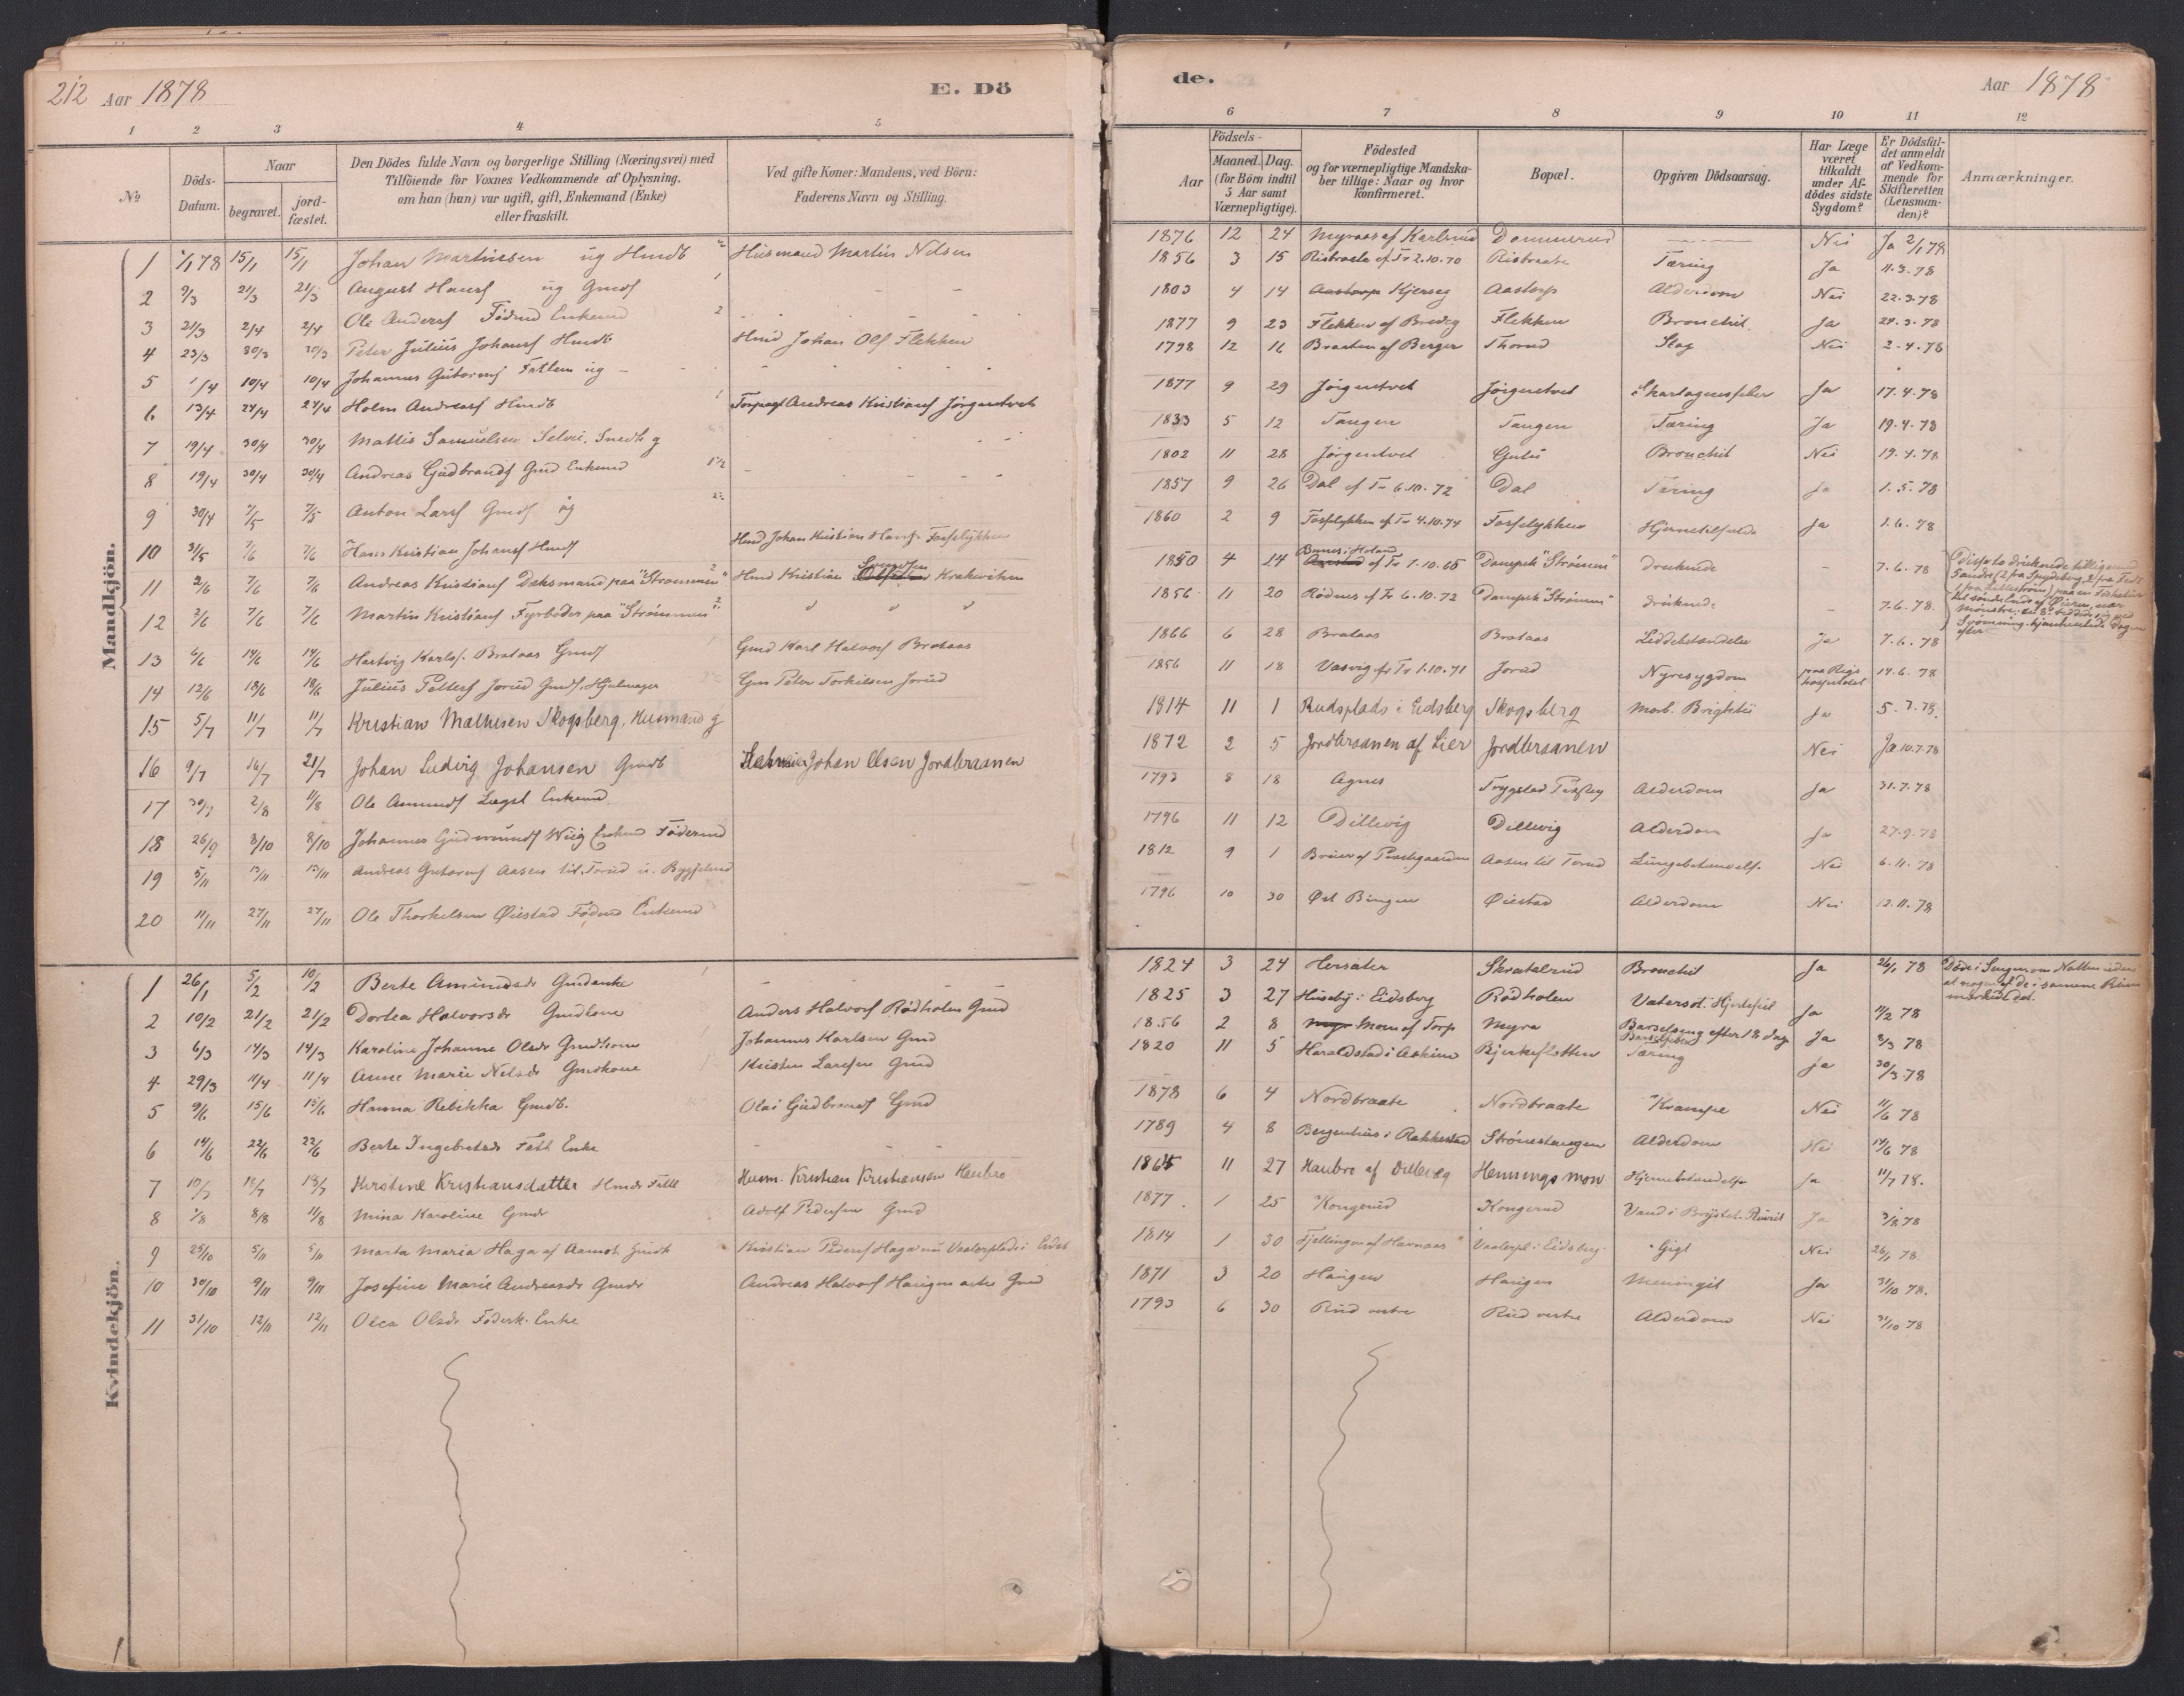 212 Aar 1878 E. Dö de. Aar 1878
1 2 3 4 5 6 7 8 9 10 11 12
No
Döds-Datum.
Naar
begravet.
jordfæstet.
Den Dödes fulde Navn og borgerlige Stilling (Næringsvei) med
Tilföiende for Voxnes Vedkommende af Oplysning.
om han (hun) var ugift, gift, Enkemand (Enke)
eller fraskilt.
Ved gifte Koner: Mandens, ved Börn:
Faderens Navn og Stilling.
Födsels-
Aar
Maaned. Dag.
(for Börn indtil
5 Aar samt
Værnepligtige).
Födested
og for værnepligtige Mandska-
ber tillige: Naar og hvor
konfirmeret.
Bopæl.
Opgiven Dödsaarsag.
Har Læge
været
tilkaldt
under Af-
dödes sidste
Sygdom?
Er Dödsfal-
det anmeldt
af Vedkom-
mende for
Skifteretten
(Lensman-
den)?
Anmærkninger.
Mandkjön.
1 1/1 78 15/1 15/1 Johan Martinssen ug Hmdb Husmand Martin Nelsen 1876 12 24 Myraas af Karlsrud Dammerud Nei Ja 2/1 78
2 9/3 21/3 21/3 August Hansf ug Gmdf 1856 3 15 Risbraate cf Tr 2.10.70 Risbraate Tæring Ja 11.3.78
3 21/3 2/4 2/4 Ole Andersf Födmd Enkemd 1803 4 14 Aastorp Kjerseg Aastorp Alderdom Nei 22.3.78
4 23/3 30/3 30/3 Peter Julius Johansf Hmdb Hmd Johan Olsf Flekken 1877 9 23 Flekken af Bredeg Flekken Bronchit. Ja 24.3.78
5 1/4 10/4 10/4 Johannes Gutormsf Fattem ug 1798 12 16 Braaten af Berger Thorud Slag Nei 2.4.78
6 13/4 24/4 24/4 Holm Andreasf Hmdb Andreas Kristiansf Jørgentvet 1877 9 29 Jørgentvet Jørgentvet Skarlagensfeber Ja 17.4.78
7 19/4 30/4 30/4 Mattis Samuelsen Selvei. g 1833 5 12 Tangen Tangen Tæring Ja 19.4.78
8 19/4 30/4 30/4 Andreas Gudbrandsf Gmd Enkemd 1802 11 28 Jørgentvet Gulli Bronchit Nei 19.4.78
9 30/4 7/5 7/5 Anton Larsf Gmdf ug 1857 9 26 Dal cf Tr 6.10.72 Dal Tæring Ja 1.5.78
10 31/5 7/6 7/6 Hans Kristian Johansf Hmdf Hmd Johan Kristian Hansf. Fosselykken 1860 2 9 Fosselykken cf Tr 4.10.74 Fosselykken Hjernetilfælde Ja 1.6.78
11 2/6 7/6 7/6 Andreas Kristiansf Dæksmand paa "Strømmen" Hmd Kristian Svendsen Krakeviken 1850 4 24 cf Tr 1.10.65 Dampsk "Strømm" Druknede 7.6.78
12 2/6 7/6 7/6 Martin Kristiansf Fyrbøder paa "Strømmen" 1856 11 20 Rødnes cf Tr 6.10.72 Dampsk "Strømm" druknede 7.6.78
13 6/6 14/6 14/6 Hartvig Karlsf. Brataas Gmdf Gmd Karl Halvorsf Brataas 1866 6 28 Brataas Brataas Leddebetændelse Ja 7.6.78
14 12/6 18/6 18/6 Julius Pettersf Jorud Gmdf. Hjulmager Gm Peter Torkelsen Jorud 1856 11 18 Vasvig cf Tr 1.10.71 Jorud Nyresygdom paa Rigshospitalet 14.6.78
15 5/7 11/7 11/7 Kristian Mathisen Skogsberg. Husmand g 1814 11 1 Rudsplads i Eidsberg Skogsberg Morb. Brightii Ja 5.7.78.
16 9/7 16/7 21/7 Johan Ludvig Johansen Gmdb Johan Olsen Jordbraanen 1872 2 5 Jordbraanen af Lier Jordbraanen Nei Ja 10.7.78
17 30/7 2/8 11/8 Ole Amundsf Lægsl Enkemd 1793 8 18 Agnes Trygstad Alderdom Ja 31.7.78
18 26/9 8/10 8/10 Johannes Gudmundsf Wiig Enkmd Föderaad 1796 11 12 Dillevig Dillevig Alderdom Ja 27.9.78
19 5/11 13/11 13/11 Andreas Gutormsf Aasen til Torud 1812 9 1 af Præstegaarden Aasen til Torud Lungebetændelse. Nei 6.11.78
20 11/11 27/11 27/11 Ole Thorkelsen Øiestad Födmd Enkemd 1796 10 30 Øst Bingen Øiestad Alderdom Nei 12.11.78
Disse to druknede tilligemed
5 andre (2 fra Spydeberg, 2 fra Fedt
1 fra Lillestrøm) paa en
Kvindekjön.
1 26/1 5/2 10/2 Berte Amundsdr Gmdenke 1824 3 24 Hersæter Skratalrud Bronchit Ja 26/1 78
Døde i Sengen om Natten uden
at nogen af de i samme Rum
mærkede det.
2 10/2 21/2 21/2 Dorlea Halvorsdr Gmdkone Anders Halvorsf Rødholen Gmd 1825 3 27 Huseby i Eidsberg Rødholen Vatersot. Hjertefeil Ja 11/2 78
3 6/3 14/3 14/3 Karoline Johanne Olsdr Gmdkone Johannes Karlsen Gmd 1856 2 8 Moen af Torp Myra Barselseng efter 18 dage Ja 8/3 78
4 29/3 11/4 11/4 Anne Marie Nelsdr Gmdkone Kristen Larssen Gmd 1820 11 5 Haraldstad i Askim Bjerkeflotten Tæring ja 30/3.78
5 9/6 15/6 15/6 Hanna Rebekka Gmdb. Olai Gudbrandsf Gmd 1878 6 4 Nordbraate Nordbraate Krampe Nei 11/6 78
6 14/6 22/6 22/6 Berte Ingebretsdr Fatt Enke 1789 4 8 Bergenhus i Rakkestad Strønestangen Alderdom Nei 14/6 78
7 10/7 18/7 18/7 Kirstine Kristiansdatter Husm. Kristian Kristiansen Haubro 1865 11 27 Haubro af Dillevig Henningsmon Hjernebetændelse Ja 11/7 78.
8 1/8 8/8 11/8 Mina Karoline Gmdr Adolf Pedersen Gmd 1877. 1 25 Kongerud Kongerud Vand i Brystet. Ja 3/8 78
9 25/10 5/11 5/11 Marta Maria Haga af Aamot Kristian Pedersf Haga 1814 1 30 Fjellingen af Havnaas Vaaterpl. i Eidsberg. Gigt Nei 26/1 78.
10 30/10 9/11 9/11 Josefine Marie Andreasdr Gmdr Andreas Halvorsf Haugen Gmd 1871 3 20 Haugen Haugen Meningit Ja 31/10 78.
11 31/10 12/11 12/11 Olea Olsdr Föderk. Enke 1793 6 30 Rud vestre Rud vestre Alderdom Nei 31/10 78